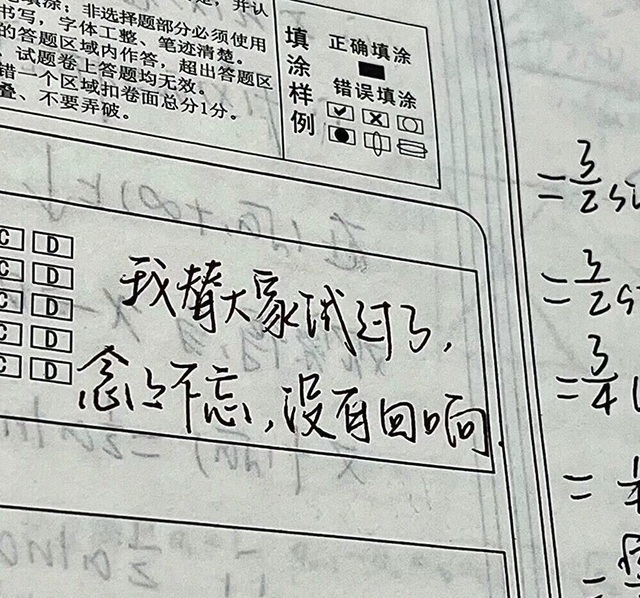 填涂；非选择题部分必须使用
书写，字体工整、笔迹清楚。
的答题区域内作答，超出答题区
试题卷上答题均无效。
错一个区域扣卷面总分1分。
叠、不要弄破。
填涂样例
正确填涂
错误填涂
C D
C D
C D
C D
C D
我替大家试过了，
念念不忘，没有回响
= 3/2 si
= 3/2 s
= 3/4
=
=